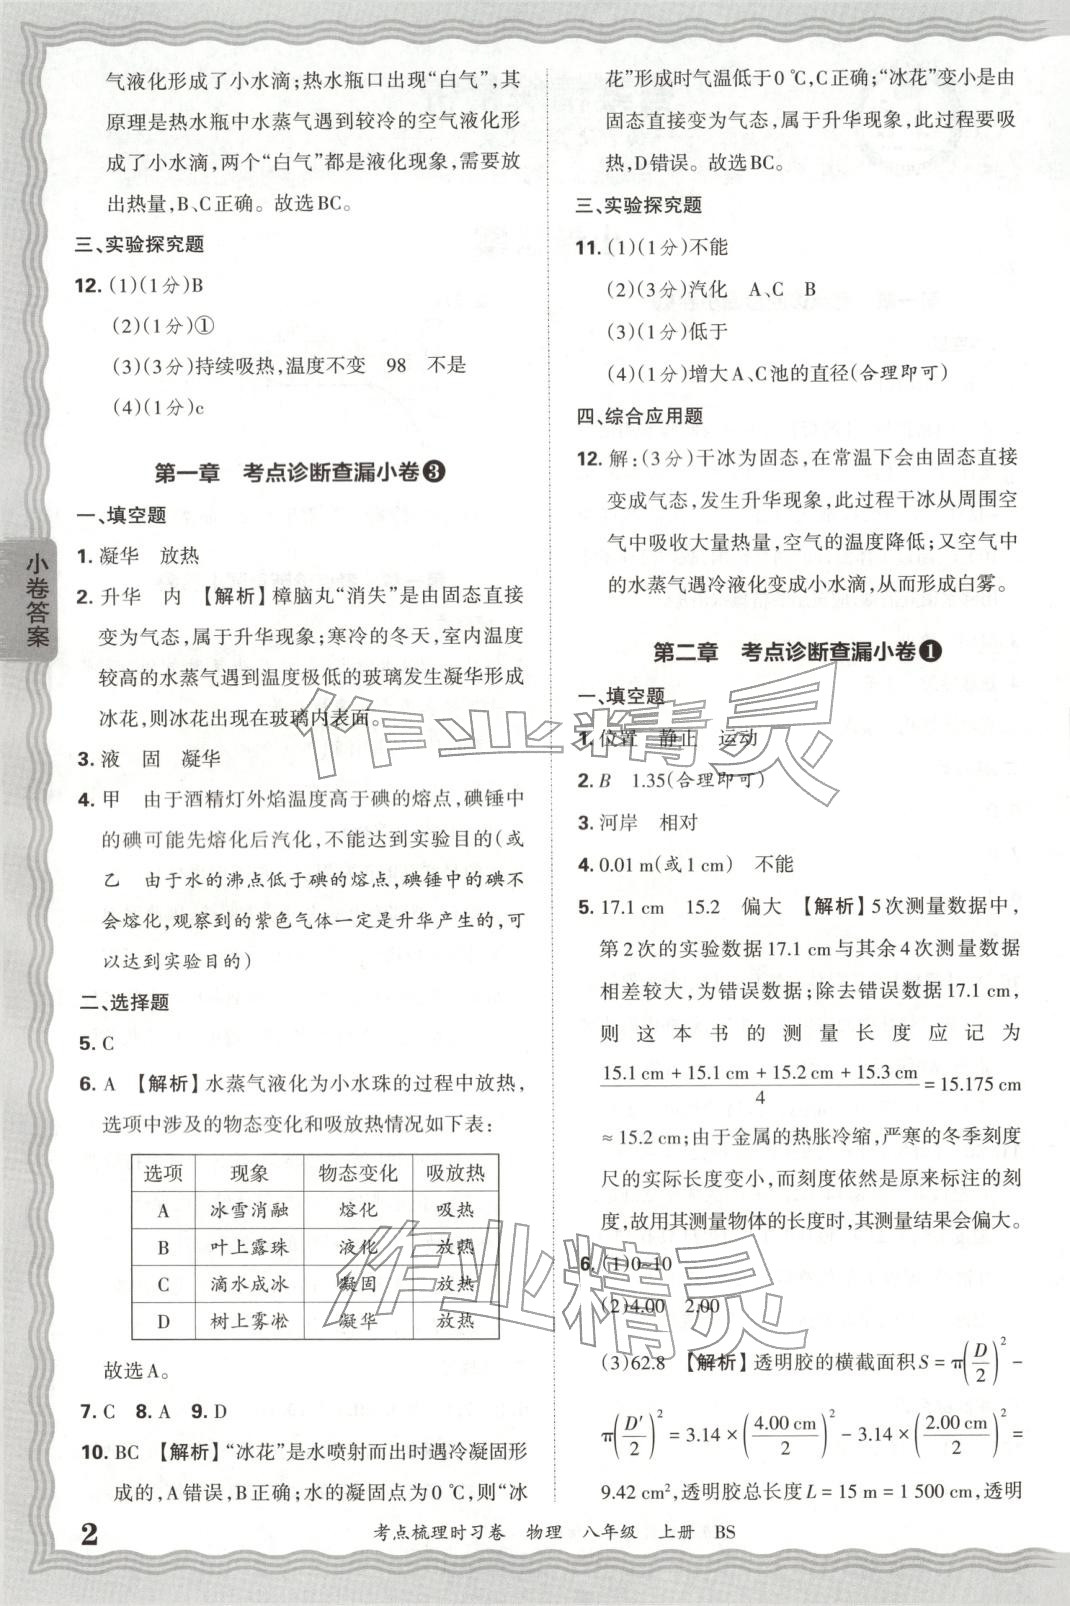 气液化形成了小水滴;热水瓶口出现“白气”,其
原理是热水瓶中水蒸气遇到较冷的空气液化形
成了小水滴,两个“白气”都是液化现象,需要放
出热量,B、C正确。故选BC。
三、实验探究题
12. (1)(1分)B
(2)(1分)①
(3)(3分)持续吸热,温度不变 98 不是
(4)(1分)c
第一章 考点诊断查漏小卷❸
一、填空题
1. 凝华 放热
2. 升华 内 【解析】樟脑丸“消失”是由固态直接
变为气态,属于升华现象;寒冷的冬天,室内温度
较高的水蒸气遇到温度极低的玻璃发生凝华形成
冰花,则冰花出现在玻璃内表面。
3. 液 固 凝华
4. 甲 由于酒精灯外焰温度高于碘的熔点,碘锤中
的碘可能先熔化后汽化,不能达到实验目的(或
乙 由于水的沸点低于碘的熔点,碘锤中的碘不
会熔化,观察到的紫色气体一定是升华产生的,可
以达到实验目的)
二、选择题
5. C
6. A 【解析】水蒸气液化为小水珠的过程中放热,
选项中涉及的物态变化和吸放热情况如下表:
选项 现象 物态变化 吸放热
A 冰雪消融 熔化 吸热
B 叶上露珠 液化 放热
C 滴水成冰 凝固 放热
D 树上雾凇 凝华 放热
故选A。
7. C 8. A 9. D
10. BC 【解析】“冰花”是水喷射而出时遇冷凝固形
成的,A错误,B正确;水的凝固点为0 ℃,则“冰
花”形成时气温低于0 ℃,C正确;“冰花”变小是由
固态直接变为气态,属于升华现象,此过程要吸
热,D错误。故选BC。
三、实验探究题
11. (1)(1分)不能
(2)(3分)汽化 A、C B
(3)(1分)低于
(4)(1分)增大A、C池的直径(合理即可)
四、综合应用题
12. 解:(3分)干冰为固态,在常温下会由固态直接
变成气态,发生升华现象,此过程干冰从周围空
气中吸收大量热量,空气的温度降低;又空气中
的水蒸气遇冷液化变成小水滴,从而形成白雾。
第二章 考点诊断查漏小卷❶
一、填空题
1. 位置 静止 运动
2. B 1.35(合理即可)
3. 河岸 相对
4. 0.01 m(或1 cm) 不能
5. 17.1 cm 15.2 偏大 【解析】5次测量数据中,
第2次的实验数据17.1 cm与其余4次测量数据
相差较大,为错误数据;除去错误数据17.1 cm,
则这本书的测量长度应记为
(15.1 cm + 15.1 cm + 15.2 cm + 15.3 cm)/4 = 15.175 cm
≈15.2 cm;由于金属的热胀冷缩,严寒的冬季刻度
尺的实际长度变小,而刻度依然是原来标注的刻
度,故用其测量物体的长度时,其测量结果会偏大。
6. (1)0~10
(2)4.00 2.00
(3)62.8 【解析】透明胶的横截面积S = π(D/2)² −
π(D′/2)² = 3.14 × (4.00 cm/2)² − 3.14 × (2.00 cm/2)² =
9.42 cm²,透明胶总长度L = 15 m = 1 500 cm,透明
小卷答案
2
考点梳理时习卷 物理 八年级 上册 BS
作业精灵
作业精灵